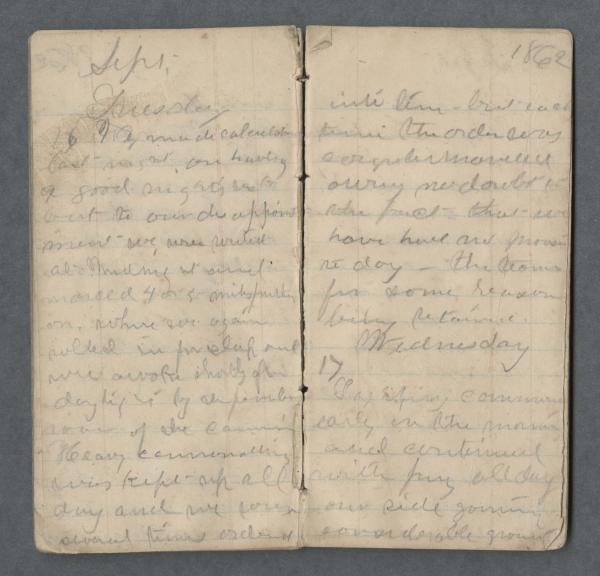 Sept,
Tuesday
16 We made calculation
last night on having
a good nights rest
but to our disappoint
ment we were routed
at midnight and
marced 4 or 5 miles further
on, where we again
rolled in for sleep and
were awoke shortly after
daylight by the
roar of the cannon
Heavy cannonading
was kept up all
day and we were
several times ordered
1862
into line but each
time the order was
countermanded
owing no doubt to
the fact that we
have had no
to day - the teams
for some reason
being retained.
Wednesday
17
firing commenced
early in the morning
and continued
with fury all day
our side gaining
considerable ground